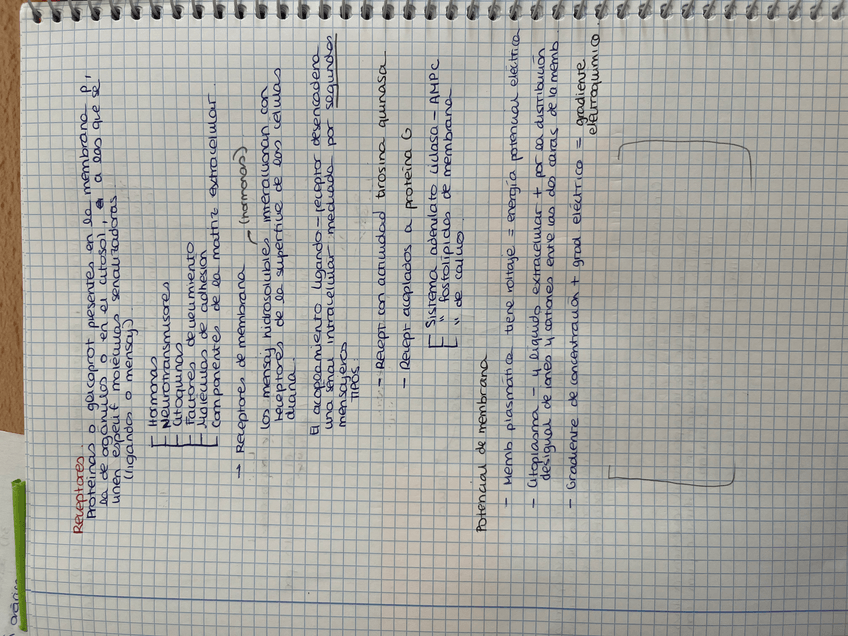 Receptores.
Proteínas o glicoprot presentes en la membrana p,
la de orgánulos o en el citosol, a las que se
unen especif moléculas señalizadoras
(ligandos o mensaj)
Hormonas
Neurotransmisores
Citoquinas
Factores de crecimiento
Moléculas de adhesión
Componentes de la matriz extracelular.
→ Receptores de membrana (hormonas)
Los mensaj hidrosolubles interaccionan con
receptores de la superficie de las células
diana.
El acoplamiento ligando-receptor desencadena
una señal intracelular mediada por segundos
mensajeros
TIPOS:
- Recept con actividad tirosina quinasa
- Recept acoplados a proteína G
Sistema adenilato ciclasa - AMPc
" fosfolípidos de membrana
" de calcio.
Potencial de membrana
- Memb plasmática tiene voltaje = energía potencial eléctrica
- Citoplasma - y líquido extracelular + por la distribución
desigual de aniones y cationes entre las dos caras de la memb.
- Gradiente de concentración + grad eléctrico = gradiente
electroquímico
orgánica